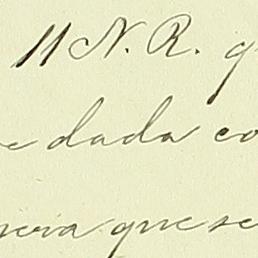 11 N. R. q
e dada co
nera que se